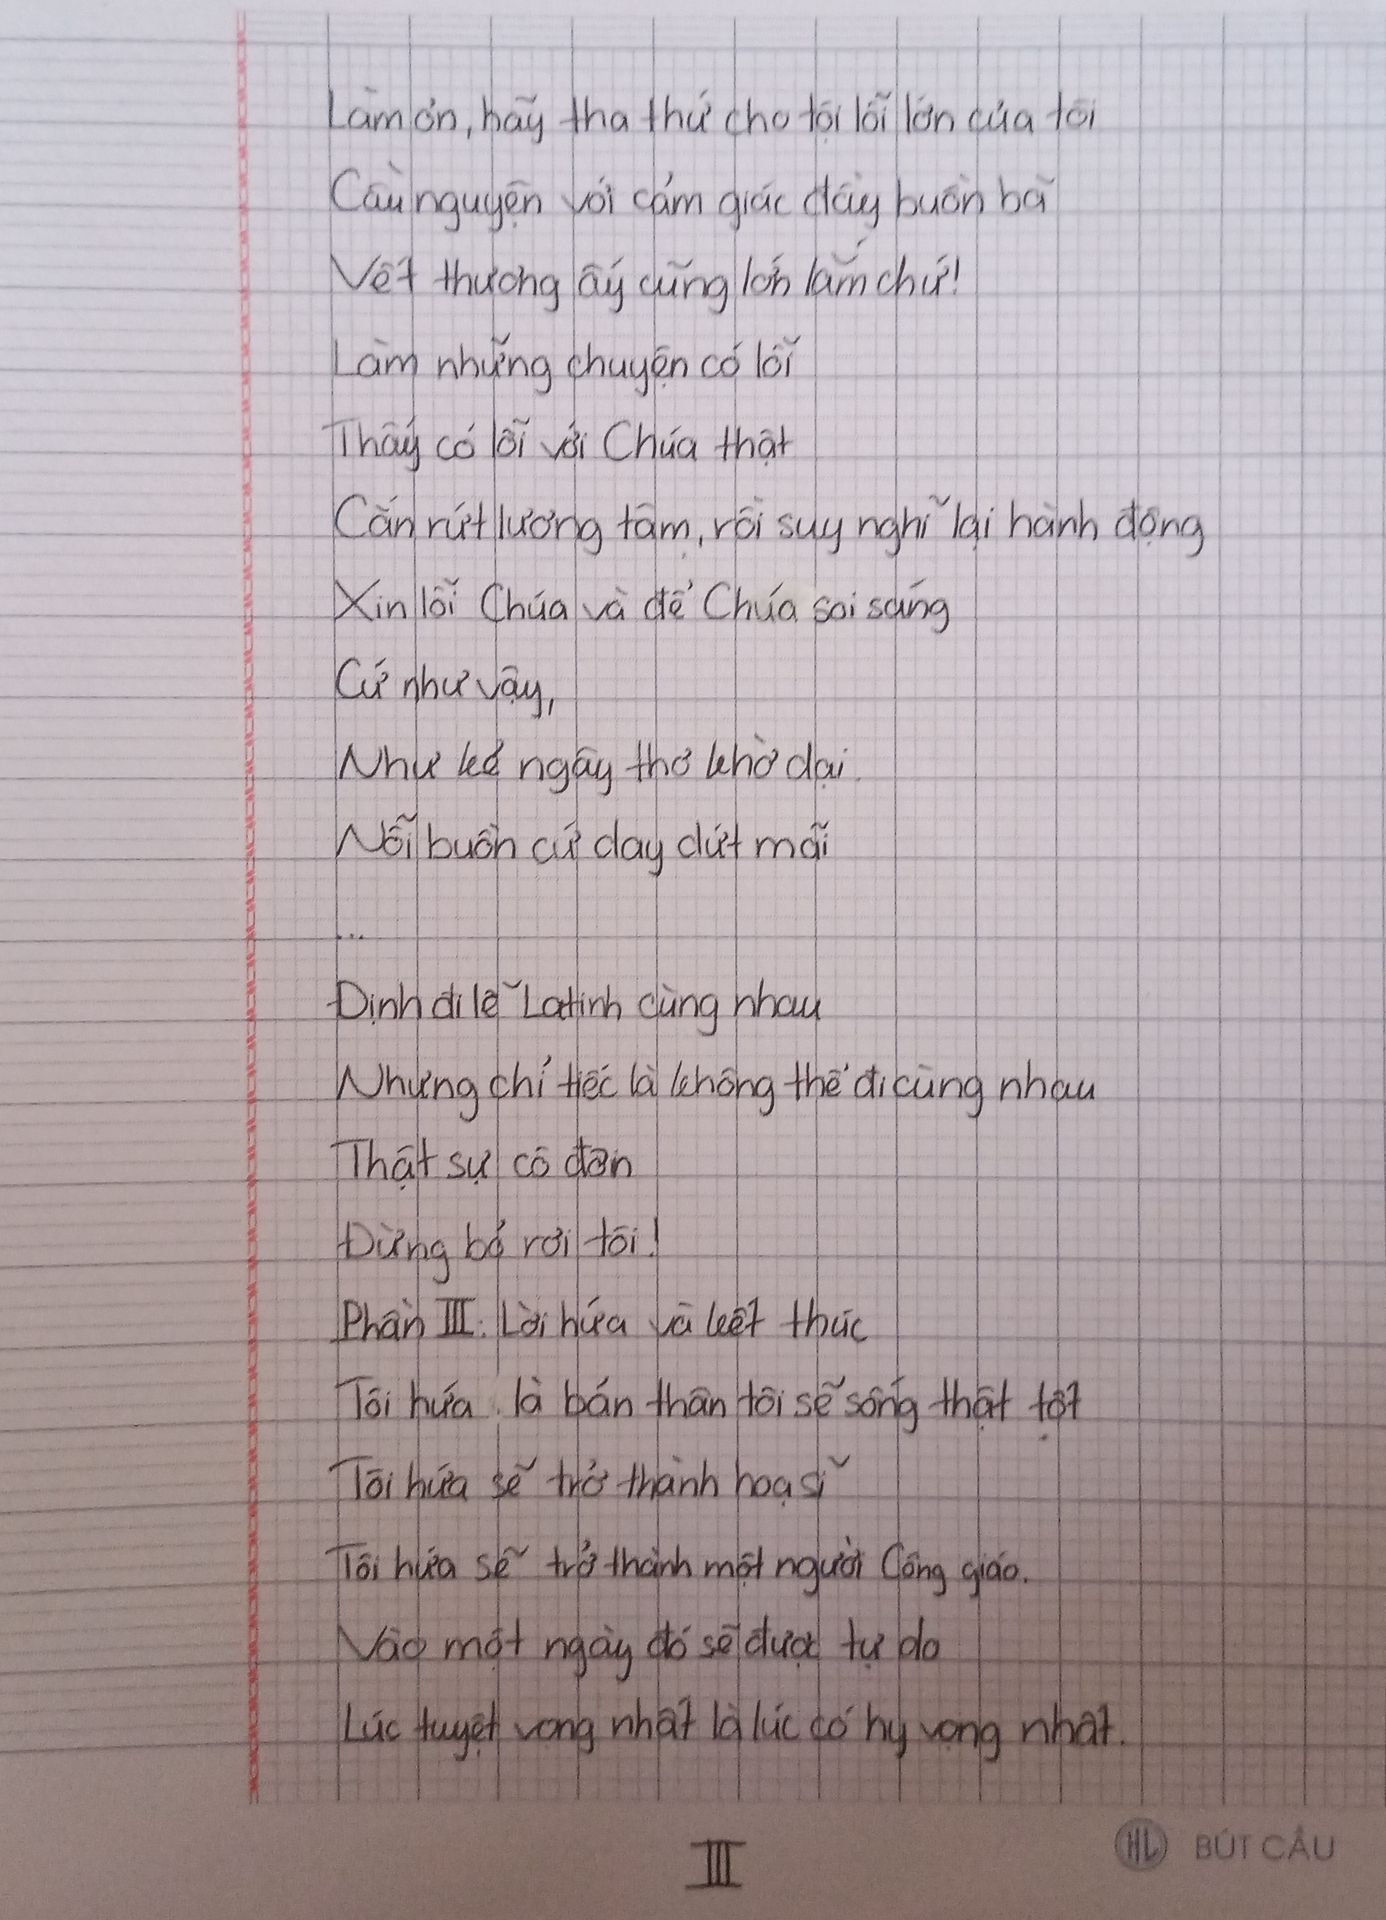 Làm ơn, hãy tha thứ cho tội lỗi lớn của tôi
Cầu nguyện với cảm giác đầy buồn bã
Vết thương ấy cũng lớn lắm chứ!
Làm những chuyện có lỗi
Thấy có lỗi với Chúa thật
Cắn rứt lương tâm, rồi suy nghĩ lại hành động
Xin lỗi Chúa và để Chúa soi sáng
Cứ như vậy,
Như kẻ ngây thơ khờ dại.
Nỗi buồn cứ day dứt mãi
...
Định đi lễ Latinh cùng nhau
Nhưng chỉ tiếc là không thể đi cùng nhau
Thật sự cô đơn
Đừng bỏ rơi tôi!
Phần III: Lời hứa và kết thúc
Tôi hứa là bản thân tôi sẽ sống thật tốt
Tôi hứa sẽ trở thành hoạ sĩ
Tôi hứa sẽ trở thành một người Công giáo.
Vào một ngày đó sẽ được tự do
Lúc tuyệt vọng nhất là lúc có hy vọng nhất.
III
HL BÚT CÂU